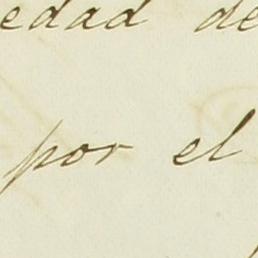 edad de
por el